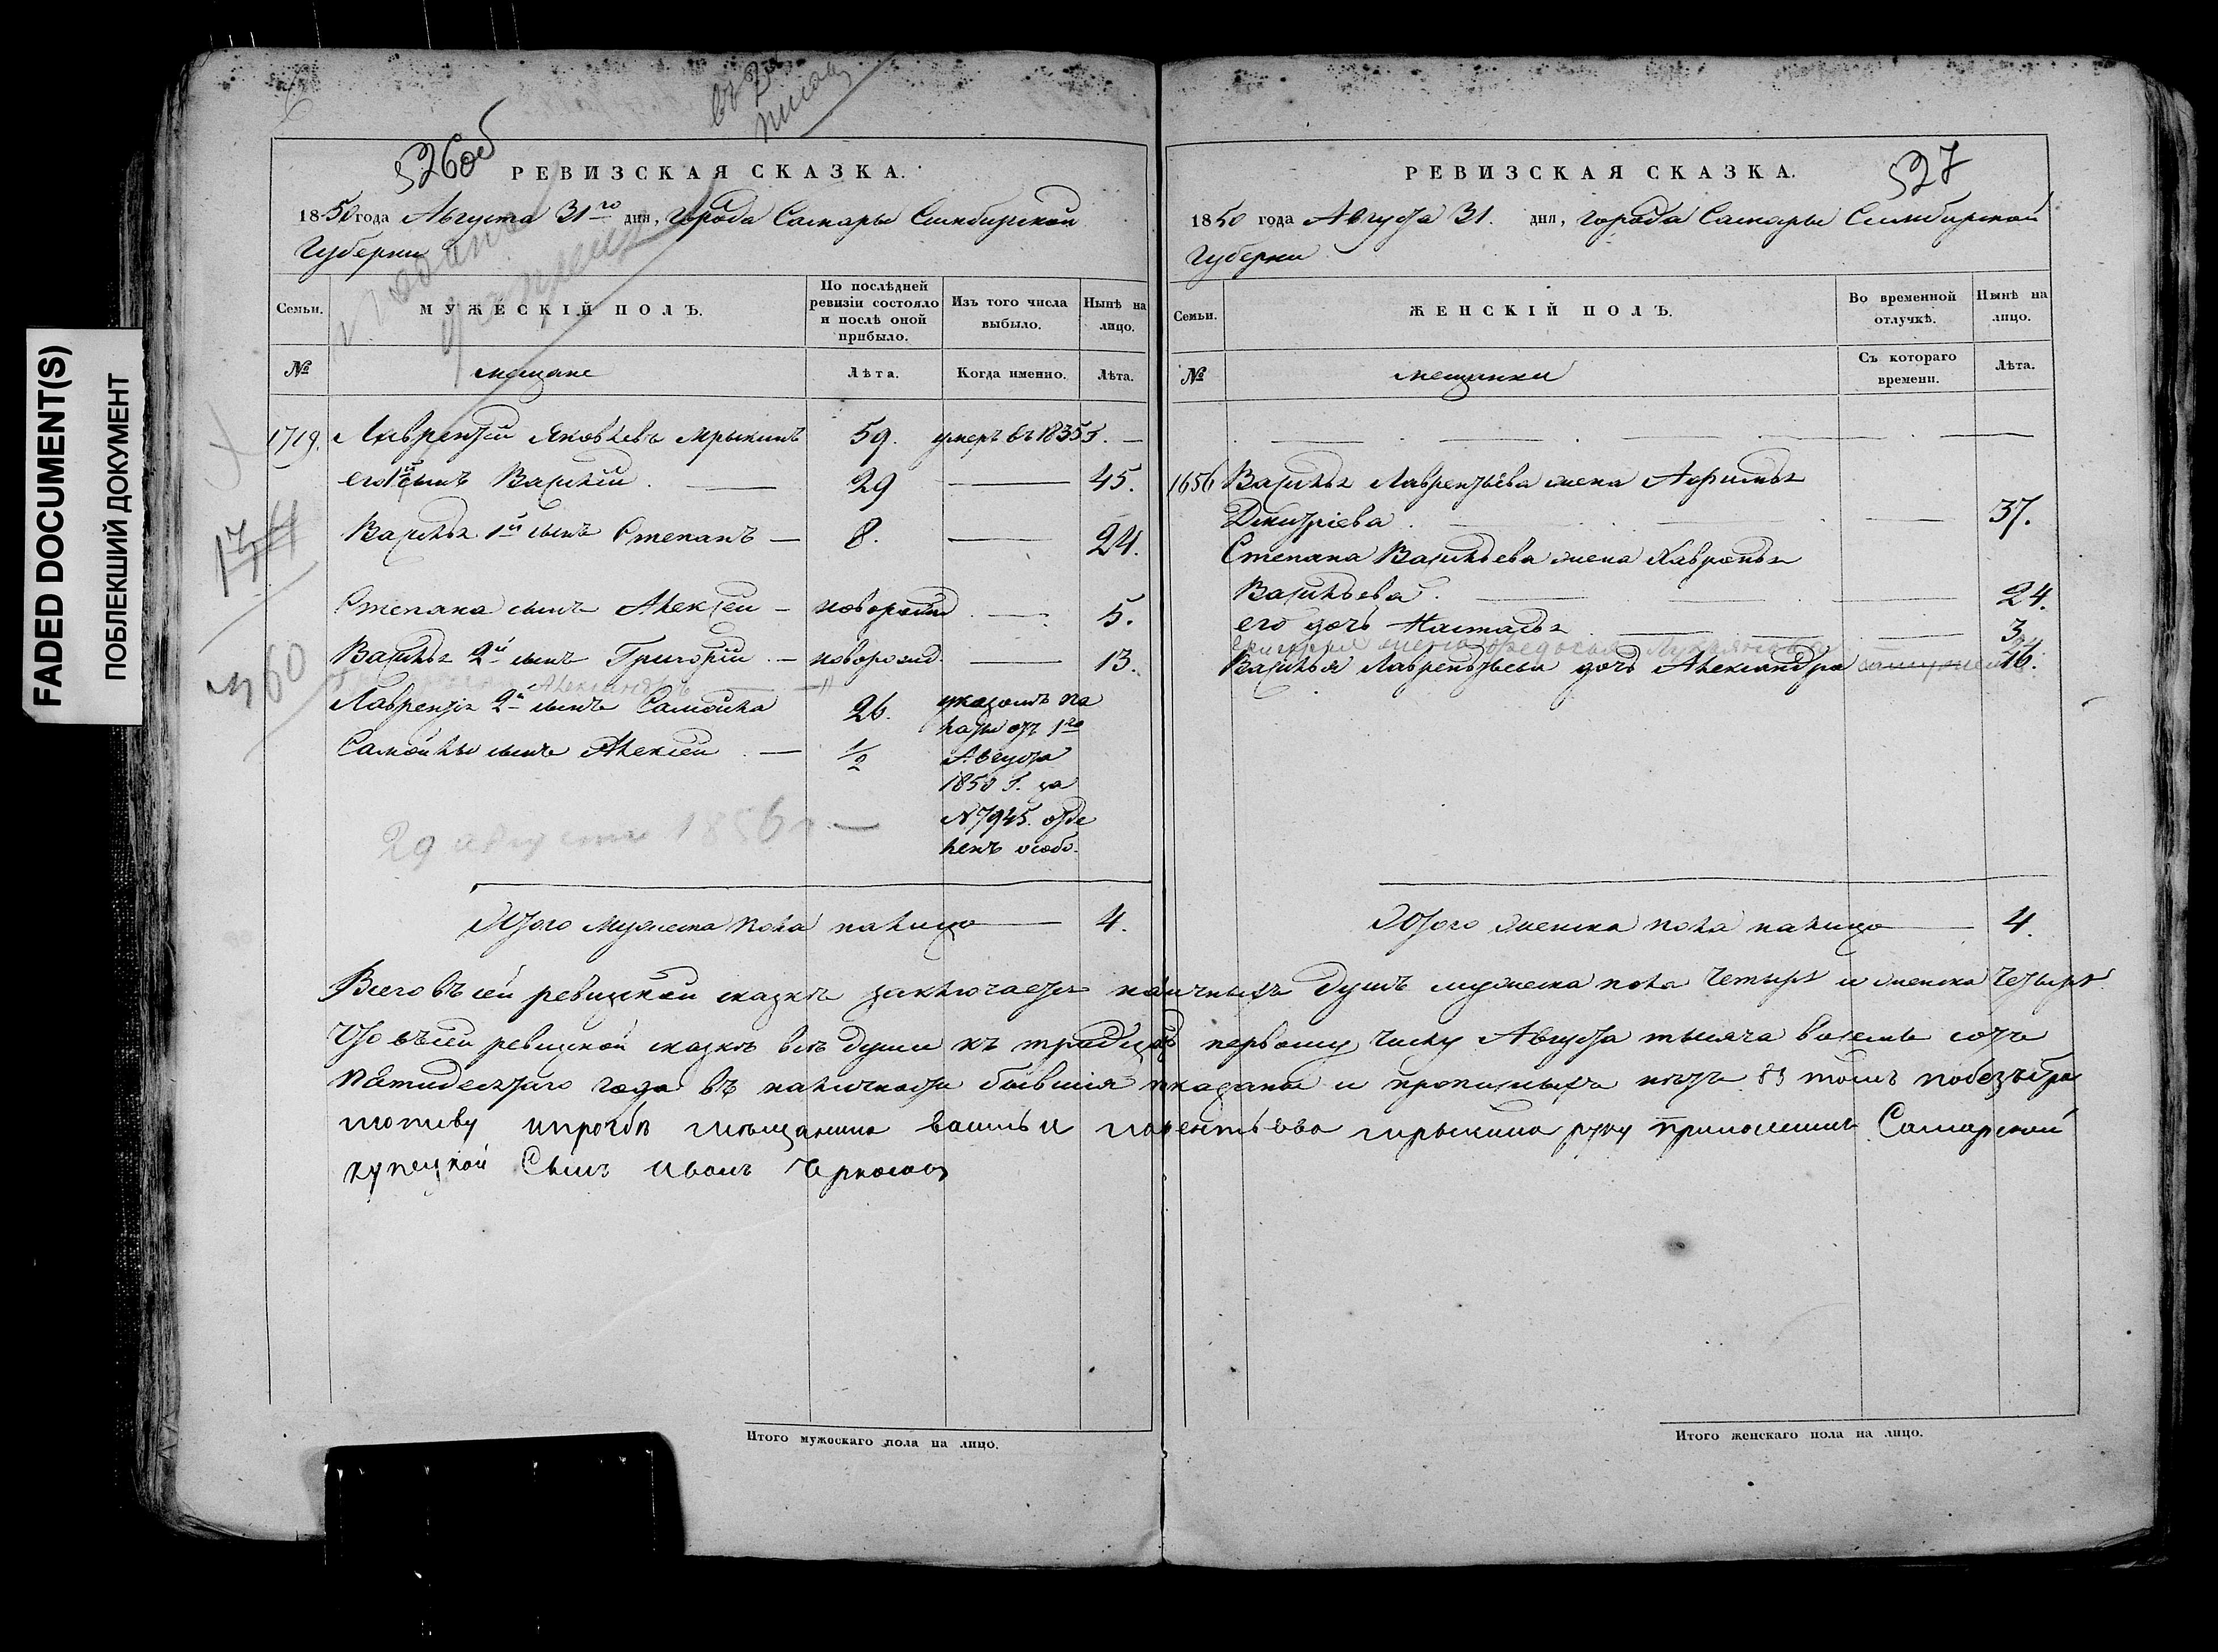 FADED DOCUMENT(S)
ПОБЛЕКШИЙ ДОКУМЕНТ
526об
РЕВИЗСКАЯ СКАЗКА.
1850 года Августа 31го дня, города Самары Симбирской
Губернии
Семьи.
МУЖЕСКІЙ ПОЛЪ.
По послѣдней ревизіи состояло и послѣ оной прибыло.
Изъ того числа выбыло.
Нынѣ на лицо.
№
мещане
Лѣта.
Когда именно.
Лѣта.
1719. Лаврентій Яковлевъ Мрыкинъ 59. умеръ въ 1835 г. —
его 1й сынъ Василій. — 29 — 45.
Василья 1й сынъ Степанъ — 8. — 24.
Степана сынъ Алексей — новорожд. — 5.
Василья 2й сынъ Григорій. — новорожд. — 13.
Лаврентья 2й сынъ Самойла 26. указомъ па
латы отъ 1го
Самойлы сынъ Алексей. — 1/2 Августа
1850 г. за
N 7945. отде
ленъ особо.
29 августа 1856 г. —
Итого мужеска пола налицо — 4.
527
РЕВИЗСКАЯ СКАЗКА.
1850 года Августа 31. дня, города Самары Симбирской
Губернии
Семьи.
ЖЕНСКІЙ ПОЛЪ.
Во временной отлучкѣ.
Нынѣ на лицо.
№
мещанки
Съ котораго времени.
Лѣта.
1656 Василья Лаврентьева жена Афимья
Дмитріева. — 37.
Степана Васильева жена Хавронья
Васильева. — 24.
его дочь Настасья — 3
Василья Лаврентьева дочь Александра 16.
Итого женска пола налицо — 4.
Всего въ сей ревизской сказкѣ заключается наличныхъ душъ мужеска пола четыре и женска четыре.
Что въ сей ревизской сказкѣ всѣ души къ тридцать первому числу Августа тысяча восемь сотъ
пятидесятаго года въ наличности бывшія показаны и прописныхъ нѣтъ въ томъ побезъгра
мотиву ипрозбѣ мещанина васильи ларентьева мрыкина руку приложилъ Самарской
купецкой Сынъ Иванъ
Итого мужескаго пола на лицо.
Итого женскаго пола на лицо.